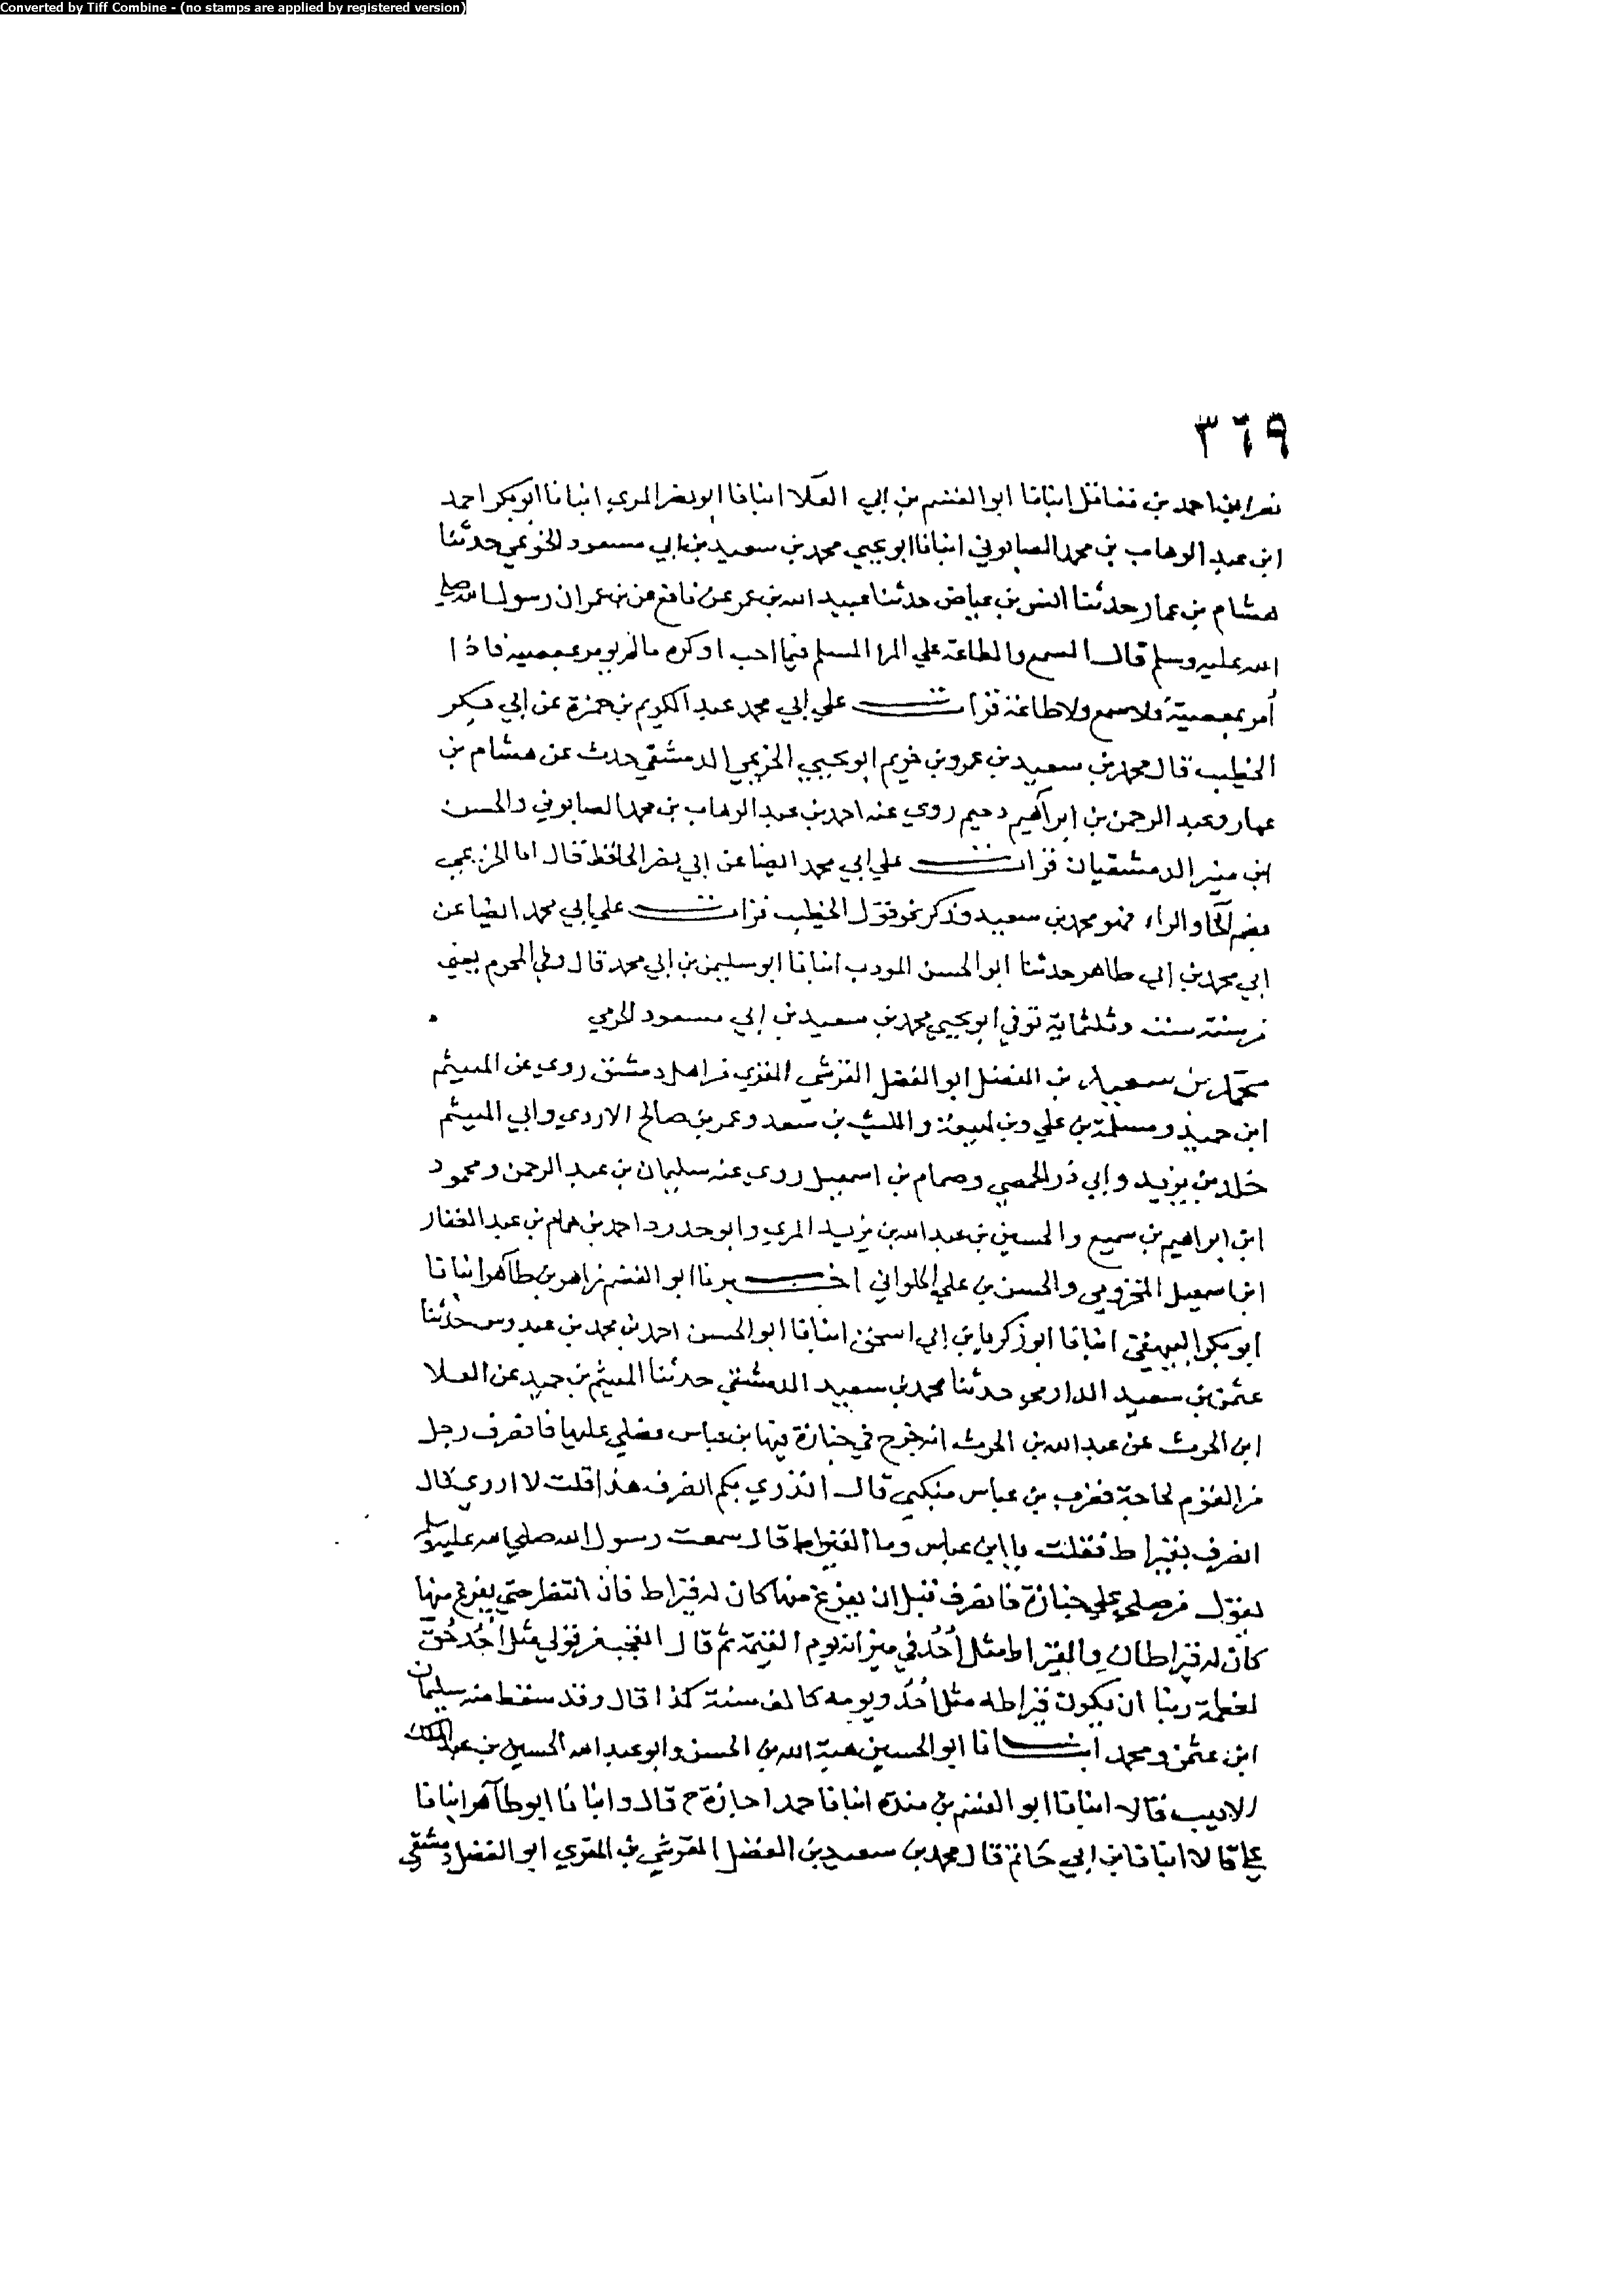 Converted by Tiff Combine - (no stamps are applied by registered version)
٣٦٩
نصر بن احمد بن مقاتل انبانا ابو القسم بن ابي العلا انبانا ابو نصر المري انبانا ابو بكر احمد
ابن عبد الوهاب بن محمد الصابوني انبانا ابو يحيي محمد بن سعيد بن ابي مسعود الخريمي حدثنا
هشام بن عمار حدثنا انس بن عياض حدثنا عبيد الله بن عمر عن نافع عن بن عمر ان رسول الله صلي
الله عليه وسلم قال السمع والطاعة علي المرا المسلم فيما احب او كره مالم يومر بمعصيه فاذا
أمر بمعصية فلا سمع ولا طاعة قرات علي ابي محمد عبد الكريم بن حمزة عن ابي بكر
الخطيب قال محمد بن سعيد بن عمرو بن خريم ابو يحيي الخريمي الدمشقي حدث عن هشام بن
عمار وعبد الرحمن بن ابراهيم دحيم روي عنه احمد بن عبد الوهاب بن محمد الصابوني والحسن
ابن منير الدمشقيان قرات علي ابي محمد ايضا عن ابي نصر الحافظ قال اما الخريمي
بضم الخا والراء فهو محمد بن سعيد وذكر نحو قول الخطيب قرات علي ابي محمد ايضا عن
ابي محمد بن ابي طاهر حدثنا ابو الحسن المودب انبانا ابو سليمن بن ابي محمد قال وفي المحرم يعني
من سنة ست وثلثماية توفي ابو يحيي محمد بن سعيد بن ابي مسعود الخرمي
محمد بن سعيد بن الفضل ابو الفضل القرشي المقري من اهل دمشق روي عن الهيثم
ابن حميد ومسلمة بن علي وبن لهيعة والليث بن سعد وعمر بن صالح الازدي وابي الهيثم
خلد بن يزيد وابي ذر الحمصي وضمام بن اسمعيل روي عنه سليمان بن عبد الرحمن ومحمود
ابن ابراهيم بن سميع والحسين بن عبد الله بن يزيد المري وابو حدرد احمد بن همام بن عبد الغفار
ابن اسمعيل المخزومي والحسن بن علي الحلواني اخبرنا ابو القسم زاهر بن طاهر انبانا
ابو بكر البيهقي انبانا ابو زكريا بن ابي اسحق انبانا ابو الحسن احمد بن محمد بن عبدوس حدثنا
عثمن بن سعيد الدارمي حدثنا محمد بن سعيد الدمشقي حدثنا الهيثم بن حميد عن العلا
ابن الحرث عن عبد الله بن الحرث انه خرج في جنازة فيها بن عباس فصلي عليها فانصرف رجل
من القوم لحاجة فضرب بن عباس منكبي قال اتدري بكم انصرف هذا قلت لا ادري قال
انصرف بقيراط فقلت يا ابن عباس وما القيراط قال سمعت رسول الله صلي الله عليه وسلم
يقول من صلي علي جنازة فانصرف قبل ان يفرغ منها كان له قيراط فان انتظر حتي يفرغ منها
كان له قيراطان والقيراط مثل أحُد في ميزانه يوم القيمة ثم قال اتعجب من قولي مثل أحُد حُقّ
لعظمة ربنا ان يكون قيراطه مثل أحُد ويومه كالف سنة كذا قال وقد سقط منه سليمان
ابن عثمن ومحمد انبانا ابو الحسين هبة الله بن الحسن وابو عبد الله الحسين بن عبد الملك
الاديب قالا انبانا ابو القسم بن منده انبانا حمد اجازة ح قال وانبانا ابو طاهر انبانا
علي قالا انبانا بن ابي حاتم قال محمد بن سعيد بن الفضل القرشي بن المقري ابو الفضل دمشقي